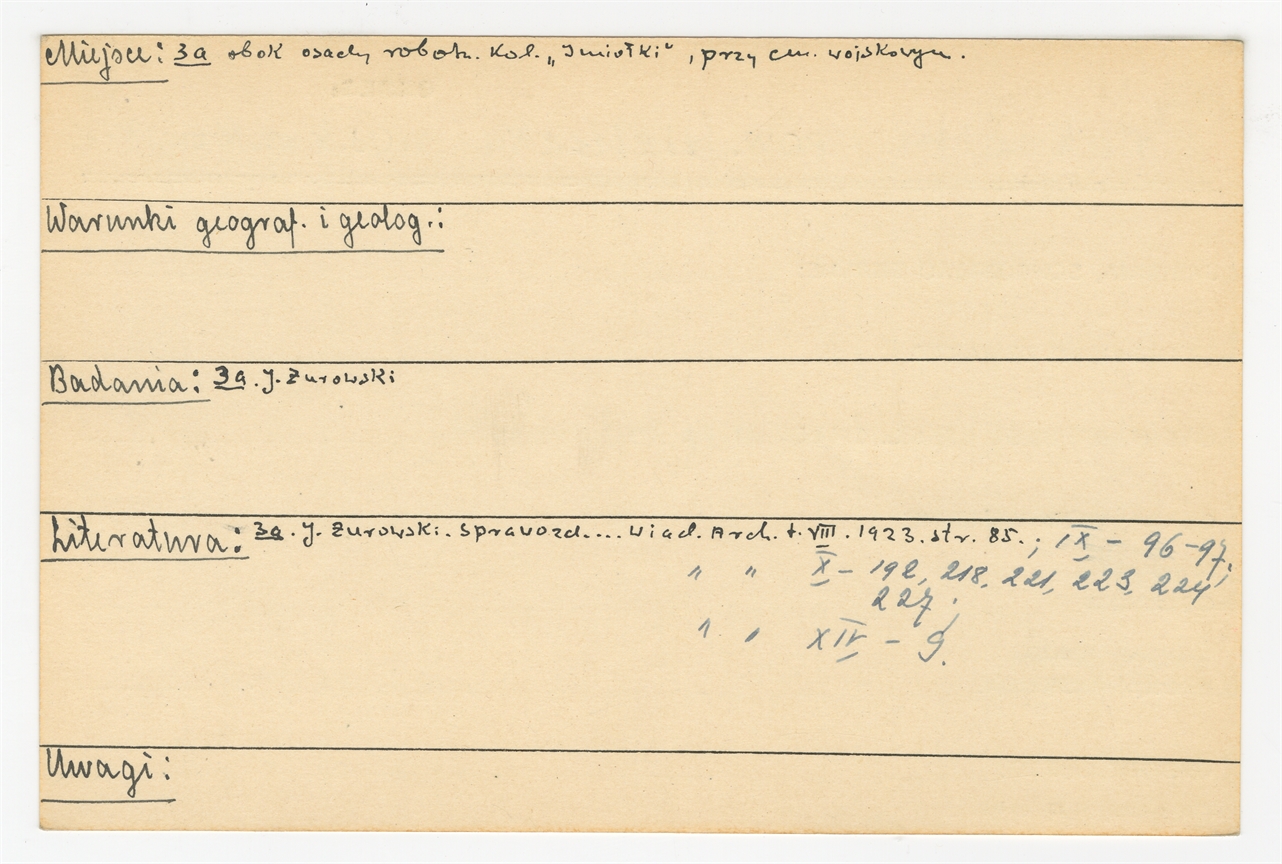 Miejsce: 3a obok osady robotn. Kol. „Imiołki“, przy cm. wojskowym.
Warunki geograf. i geolog.:
Badania: 3a. J. Żurowski
Literatura: 3a. J. Żurowski. Sprawozd.... Wiad. Arch. t. VIII. 1923. str. 85.; IX - 96-97;
" " X - 192, 218, 221, 223, 224
227;
" " XIV - 9.
Uwagi: